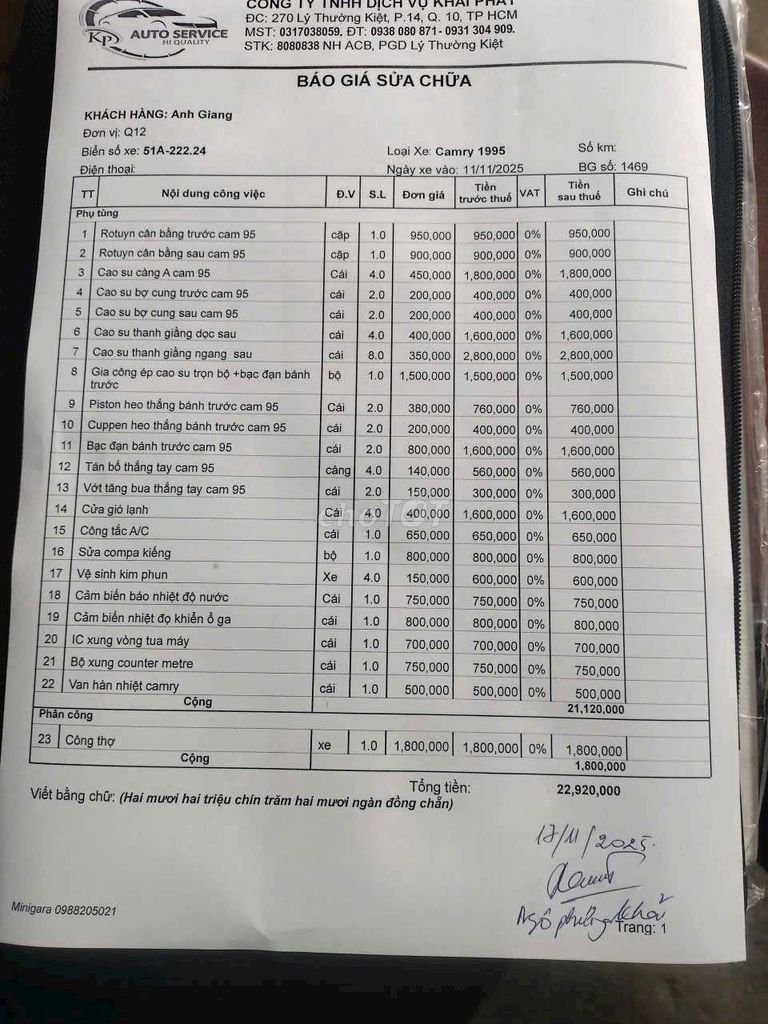 CÔNG TY TNHH DỊCH VỤ KHẢI PHÁT
ĐC: 270 Lý Thường Kiệt, P.14, Q. 10, TP HCM
KP AUTO SERVICE
HI QUALITY
MST: 0317038059. ĐT: 0938 080 871 - 0931 304 909.
STK: 8080838 NH ACB, PGD Lý Thường Kiệt
BÁO GIÁ SỬA CHỮA
KHÁCH HÀNG: Anh Giang
Đơn vị: Q12
Biển số xe: 51A-222.24 Loại Xe: Camry 1995 Số km:
Điện thoại: Ngày xe vào: 11/11/2025 BG số: 1469
TT Nội dung công việc Đ.V S.L Đơn giá Tiền trước thuế VAT Tiền sau thuế Ghi chú
Phụ tùng
1 Rotuyn cân bằng trước cam 95 cặp 1.0 950,000 950,000 0% 950,000
2 Rotuyn cân bằng sau cam 95 cặp 1.0 900,000 900,000 0% 900,000
3 Cao su càng A cam 95 Cái 4.0 450,000 1,800,000 0% 1,800,000
4 Cao su bợ cung trước cam 95 cái 2.0 200,000 400,000 0% 400,000
5 Cao su bợ cung sau cam 95 cái 2.0 200,000 400,000 0% 400,000
6 Cao su thanh giằng dọc sau cái 4.0 400,000 1,600,000 0% 1,600,000
7 Cao su thanh giằng ngang sau cái 8.0 350,000 2,800,000 0% 2,800,000
8 Gia công ép cao su trọn bộ +bạc đạn bánh bộ 1.0 1,500,000 1,500,000 0% 1,500,000
trước
9 Piston heo thắng bánh trước cam 95 Cái 2.0 380,000 760,000 0% 760,000
10 Cuppen heo thắng bánh trước cam 95 cái 2.0 200,000 400,000 0% 400,000
11 Bạc đạn bánh trước cam 95 cái 2.0 800,000 1,600,000 0% 1,600,000
12 Tán bố thắng tay cam 95 càng 4.0 140,000 560,000 0% 560,000
13 Vớt tăng bua thắng tay cam 95 cái 2.0 150,000 300,000 0% 300,000
14 Cửa gió lạnh Cái 4.0 400,000 1,600,000 0% 1,600,000
15 Công tắc A/C cái 1.0 650,000 650,000 0% 650,000
16 Sửa compa kiếng bộ 1.0 800,000 800,000 0% 800,000
17 Vệ sinh kim phun Xe 4.0 150,000 600,000 0% 600,000
18 Cảm biến báo nhiệt độ nước Cái 1.0 750,000 750,000 0% 750,000
19 Cảm biến nhiệt đọ khiển ổ ga cái 1.0 800,000 800,000 0% 800,000
20 IC xung vòng tua máy cái 1.0 700,000 700,000 0% 700,000
21 Bộ xung counter metre cái 1.0 750,000 750,000 0% 750,000
22 Van hàn nhiệt camry cái 1.0 500,000 500,000 0% 500,000
Cộng 21,120,000
Phần công
23 Công thợ xe 1.0 1,800,000 1,800,000 0% 1,800,000
Cộng 1,800,000
Tổng tiền: 22,920,000
Viết bằng chữ: (Hai mươi hai triệu chín trăm hai mươi ngàn đồng chẵn)
17/11/2025
Minigara 0988205021
Trang: 1
chợTỐT